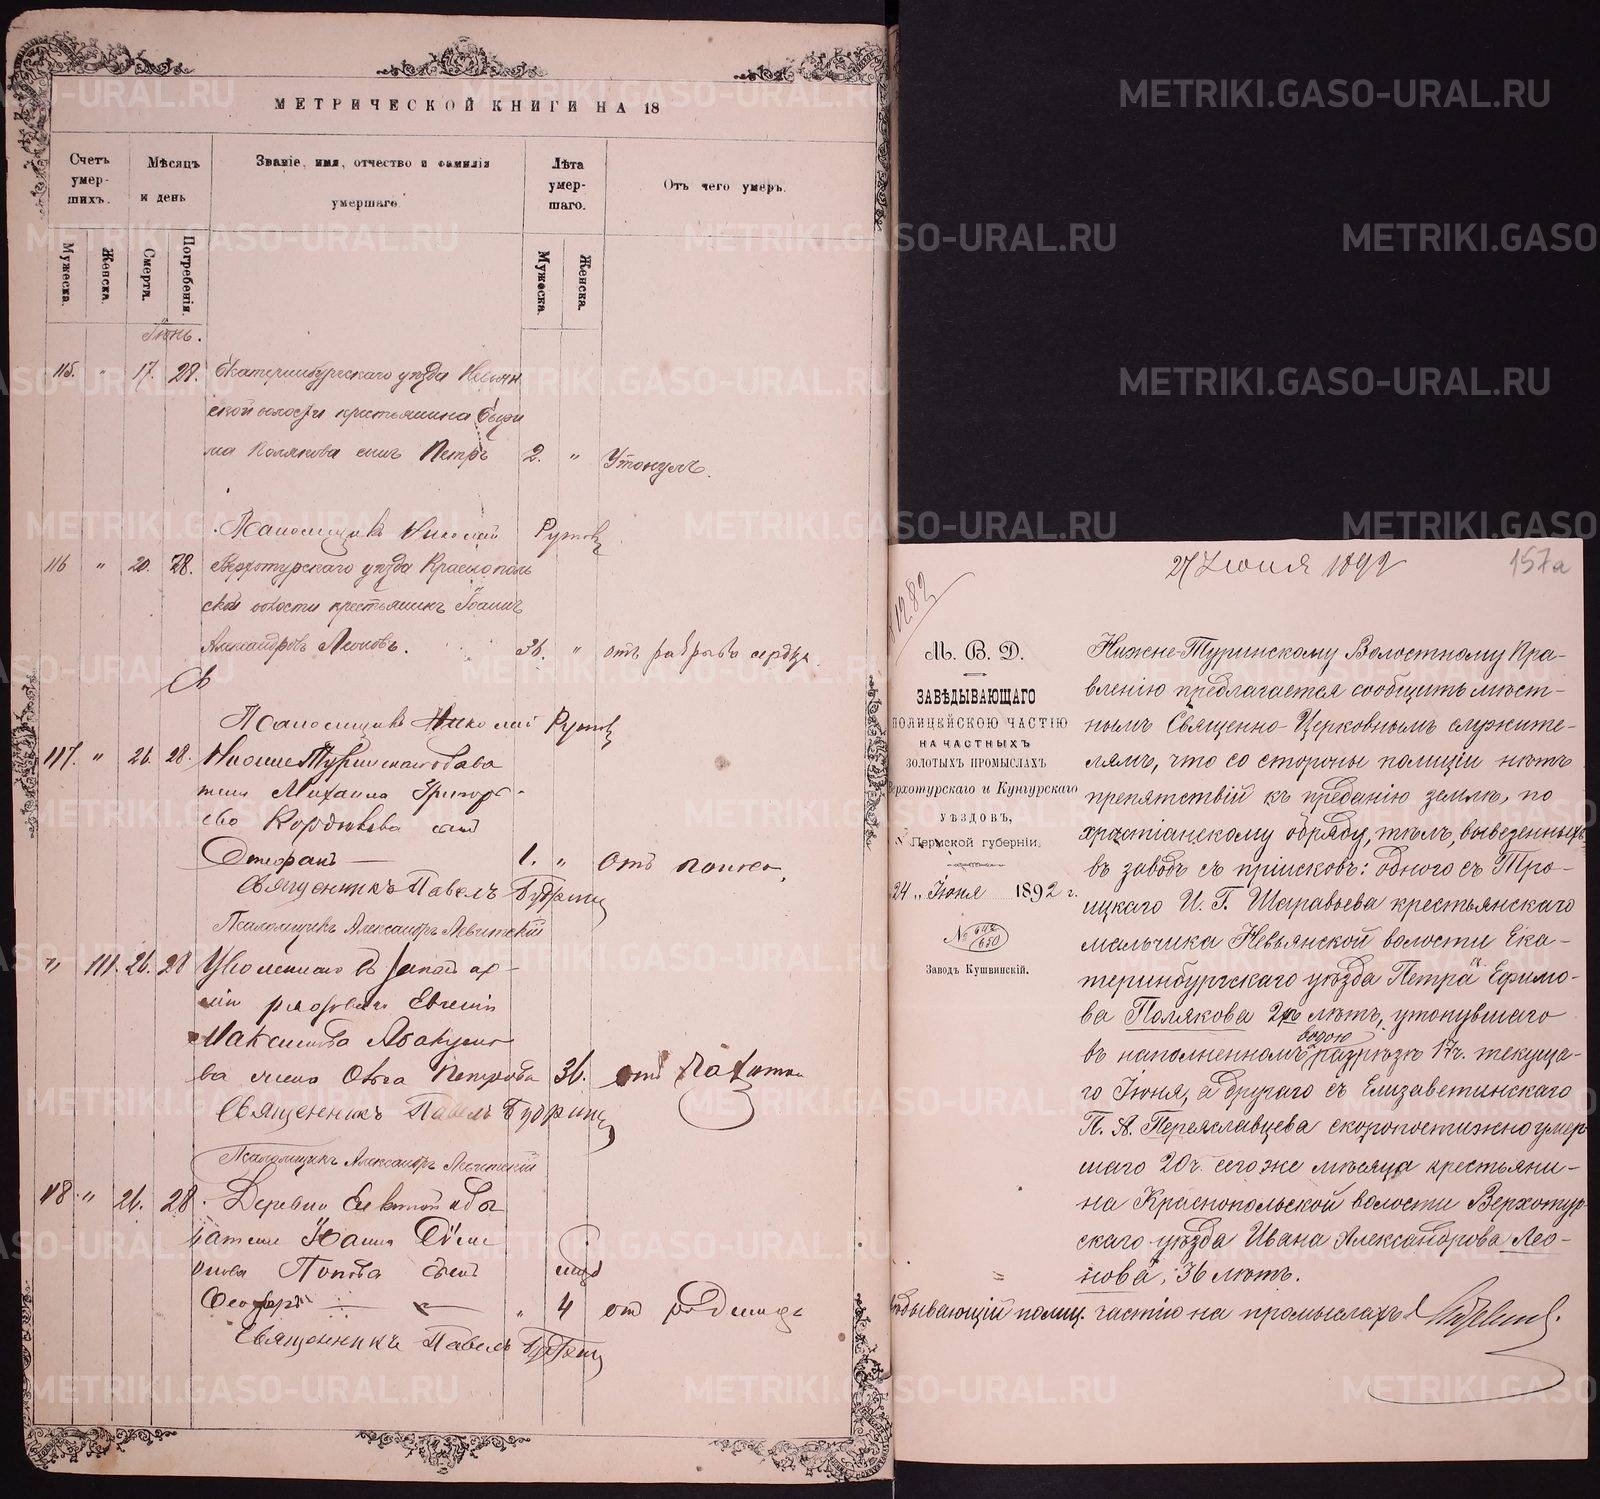 МЕТРИЧЕСКОЙ КНИГИ НА 18
Счетъ умер-шихъ.
Мѣсяцъ и день
Званіе, имя, отчество и фамилія умершаго.
Лѣта умер-шаго.
Отъ чего умеръ.
Мужеска.
Женска.
Смерти.
Погребенія.
Мужеска.
Женска.
Іюнь.
115. " 17. 28. Екатеринбургскаго уѣзда Невьян
ской волости крестьянина Ефи
ма Полякова сынъ Петръ 2. " Утонулъ.
Псаломщикъ Николай
116 " 20. 28. Верхотурскаго уѣзда Краснополь
ской волости крестьянинъ Іоаннъ
Александровъ Леоновъ. 36. " отъ разрыва сердца.
Св
Псаломщикъ Николай
117. " 26. 28. Нижне Туринскаго обыва
теля Михаила Григорь-
ева сынъ
Стефанъ — 1. " Отъ поноса,
Священникъ Павелъ
Псаломщикъ Александръ Левитскій
" 111. 26. 28 Уволеннаго въ запасъ ар-
міи рядоваго Евгенія
Максимова
ва жена Ольга Петрова 36. отъ
Священникъ Павелъ
Псаломщикъ Александръ Левитскій
118 " 26. 28. Деревни обы
вателя Іоанна
Попова сынъ
Ѳеодоръ — " 4 от родимца
Священникъ Павелъ
27 Іюня 1892
157а
1282
М. В. Д.
ЗАВѢДЫВАЮЩАГО
ПОЛИЦЕЙСКОЮ ЧАСТІЮ
НА ЧАСТНЫХЪ
ЗОЛОТЫХЪ ПРОМЫСЛАХЪ
Верхотурскаго и Кунгурскаго
УѢЗДОВЪ,
Пермской губерніи.
24 „ Іюня 1892 г.
№ 642/650
Заводъ Кушвинскій.
Нижне-Туринскому Волостному Пра-
вленію предлагается сообщить мѣст-
нымъ Священно-Церковнымъ служите-
лямъ, что со стороны полиціи нѣтъ
препятствій къ преданію землѣ, по
христіанскому обряду, тѣлъ, вывезенныхъ
въ заводъ съ пріисковъ: одного съ Тро-
ицкаго И. Г. Шаравьева крестьянскаго
мальчика Невьянской волости Ека-
теринбургскаго уѣзда Петра Ефимо-
ва Полякова 2хъ лѣтъ, утонувшаго
въ наполненномъ водою разрѣзѣ 17ч. текуща-
го Іюня, а другаго съ Елизаветинскаго
П. А. Переяславцева скоропостижно умер
шаго 20ч. сего же мѣсяца крестьяни-
на Краснопольской волости Верхотур
скаго уѣзда Ивана Александрова Лео-
нова, 36 лѣтъ.
Завѣдывающій полиц. частію на промыслахъ
METRIKI.GASO-URAL.RU